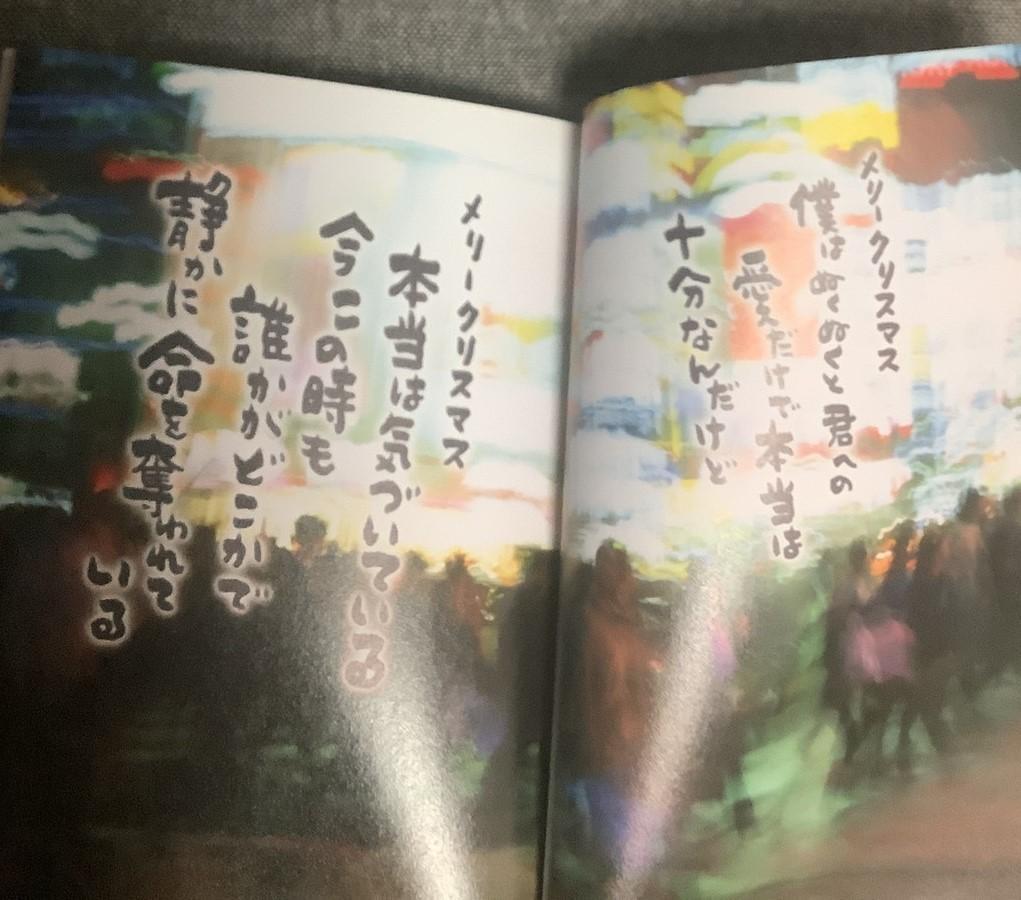 メリークリスマス
僕はぬくぬくと君への
愛だけで本当は
十分なんだけど
メリークリスマス
本当は気づいている
今この時も
誰かがどこかで
静かに命を奪われて
いる